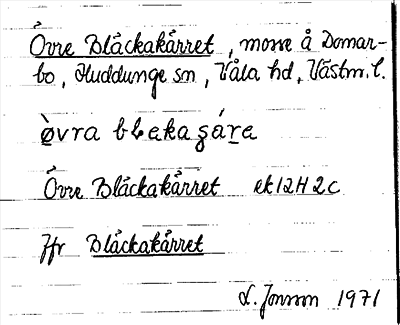 Övre Blåckakärret, mosse å Domar-
bo, Huddunge sn, Våla hd, Västm. l.
ö̀vra blɛkaʂárɛ
Övre Blåckakärret ek 12H 2c
Jfr Blåckakärret
L. Jonson 1971